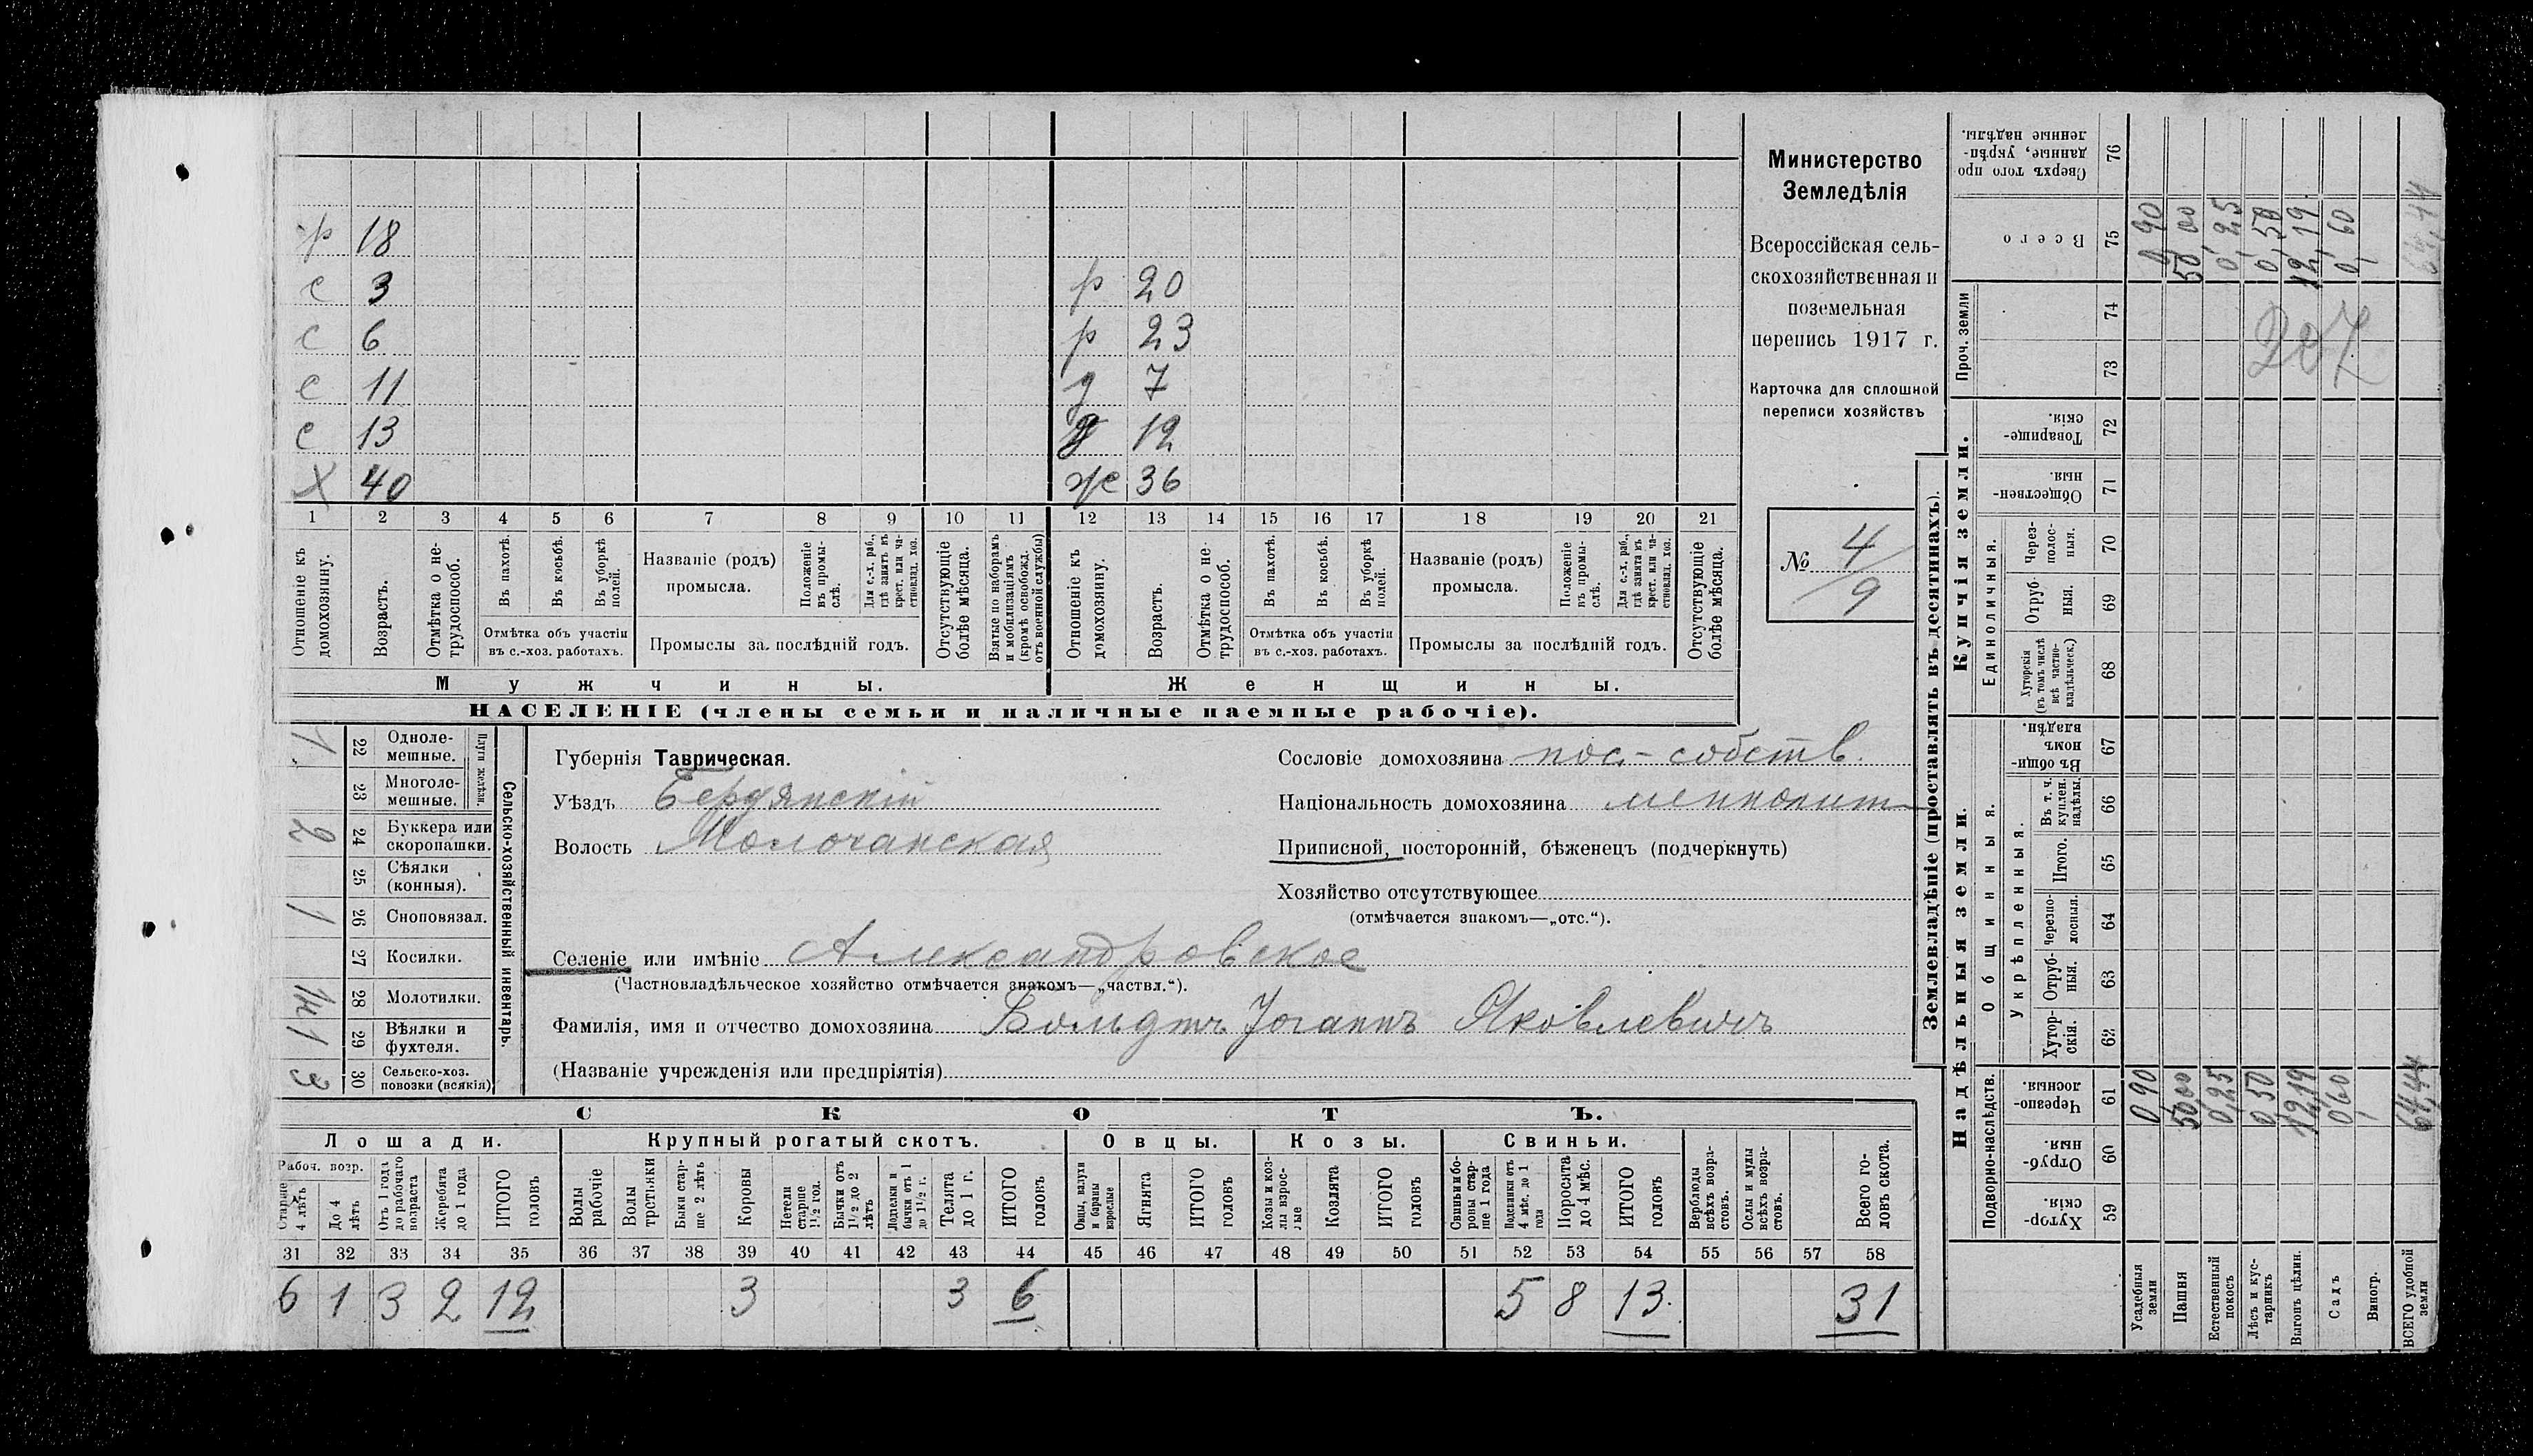 р 18
с 3 р 20
с 6 р 23
с 11 д 7
с 13 д 12
х 40 же 36
1 2 3 4 5 6 7 8 9 10 11 12 13 14 15 16 17 18 19 20 21
Отношеніе къ домохозяину.
Возрастъ.
Отмѣтка о не-трудоспособ.
Въ пахотѣ.
Въ косьбѣ.
Въ уборкѣ полей.
Отмѣтка объ участіи
въ с.-хоз. работахъ.
Названіе (родъ)
промысла.
Положеніе въ промы-слѣ.
Для с.-х. раб., гдѣ занятъ въ крест. или ча-стновлад. хоз.
Промыслы за послѣдній годъ.
Отсутствующіе болѣе мѣсяца.
Взятые по наборамъ и мобилизаціямъ (кромѣ освобожд. отъ военной службы)
Отношеніе къ домохозяину.
Возрастъ.
Отмѣтка о не-трудоспособ.
Въ пахотѣ.
Въ косьбѣ.
Въ уборкѣ полей.
Отмѣтка объ участіи
въ с.-хоз. работахъ.
Названіе (родъ)
промысла.
Положеніе въ промы-слѣ.
Для с.-х. раб., гдѣ занята въ крест. или ча-стновлад. хоз.
Промыслы за послѣдній годъ.
Отсутствующіе болѣе мѣсяца.
Мужчины. Женщины.
НАСЕЛЕНІЕ (члены семьи и наличные наемные рабочіе).
Министерство
Земледѣлія
Всероссійская сель-
скохозяйственная и
поземельная
перепись 1917 г.
Карточка для сплошной
переписи хозяйствъ
№ 4/9
Сельско-хозяйственный инвентарь.
Плуги желѣзн.
1 22 Одноле-мешные.
23 Многоле-мешные.
2 24 Буккера или скоропашки.
25 Сѣялки (конныя).
1 26 Сноповязал.
27 Косилки.
28 Молотилки.
1 29 Вѣялки и фухтеля.
3 30 Сельско-хоз. повозки (всякія)
Губернія Таврическая.
Уѣздъ Бердянскій
Волость Молочанская
Сословіе домохозяина пос.-собств.
Національность домохозяина меннонит
Приписной, посторонній, бѣженецъ (подчеркнуть)
Хозяйство отсутствующее
(отмѣчается знакомъ—„отс.“).
Селеніе или имѣніе Александровское
(Частновладѣльческое хозяйство отмѣчается знакомъ—„частвл.“).
Фамилія, имя и отчество домохозяина Больдтъ Іоганнъ Яковлевичъ
(Названіе учрежденія или предпріятія)
СКОТЪ.
Лошади. Крупный рогатый скотъ. Овцы. Козы. Свиньи.
Рабоч. возр.
Старше 4 лѣтъ
До 4 лѣтъ
Отъ 1 года до рабочаго возраста
Жеребята до 1 года
ИТОГО головъ
Волы рабочіе
Волы третьяки
Быки стар-ше 2 лѣтъ
Коровы
Нетели старше 1 1/2 год.
Бычки отъ 1 1/2 до 2 лѣтъ
Подтелки и бычки отъ 1 до 1 1/2 г.
Телята до 1 г.
ИТОГО головъ
Овцы, валухи и бараны взрослые
Ягнята
ИТОГО головъ
Козы и коз-лы взрос-лые
Козлята
ИТОГО головъ
Свиньи и бо-ровы стар-ше 1 года
Подсвинки отъ 4 мѣс. до 1 года
Поросята до 4 мѣс.
ИТОГО головъ
Верблюды всѣхъ возра-стовъ.
Ослы и мулы всѣхъ возра-стовъ.
Всего го-ловъ скота.
31 32 33 34 35 36 37 38 39 40 41 42 43 44 45 46 47 48 49 50 51 52 53 54 55 56 57 58
6 1 3 2 12 3 3 6 5 8 13 31
Землевладѣніе (проставлять въ десятинахъ).
Надѣльныя земли. Купчія земли. Проч. земли
Подворно-наслѣдств. Общинныя. Укрѣпленныя. Единоличныя.
Хутор-скія. 59
Отруб-ныя. 60
Черезпо-лосныя. 61
Хутор-скія. 62
Отруб-ныя. 63
Черезпо-лосныя. 64
Итого. 65
Въ т. ч. куплен. надѣлы. 66
Въ общи-номъ владѣн. 67
Хуторскія (въ томъ числѣ всѣ частно-владѣльческ.) 68
Отруб-ныя. 69
Через-полос-ныя. 70
Обществен-ныя. 71
Товарище-скія. 72
73
74
Всего 75
Сверхъ того про-данные, укрѣп-ленные надѣлы. 76
Усадебныя земли 0,90 0,90
Пашня 50,00 50,00
Естественный покосъ 0,25 0,25
Лѣсъ и кус-тарникъ 0,50 0,50
Выгонъ цѣлин. 12,19 12,19
Садъ 0,60 0,60
Виногр.
ВСЕГО удобной земли 64,44 64,44